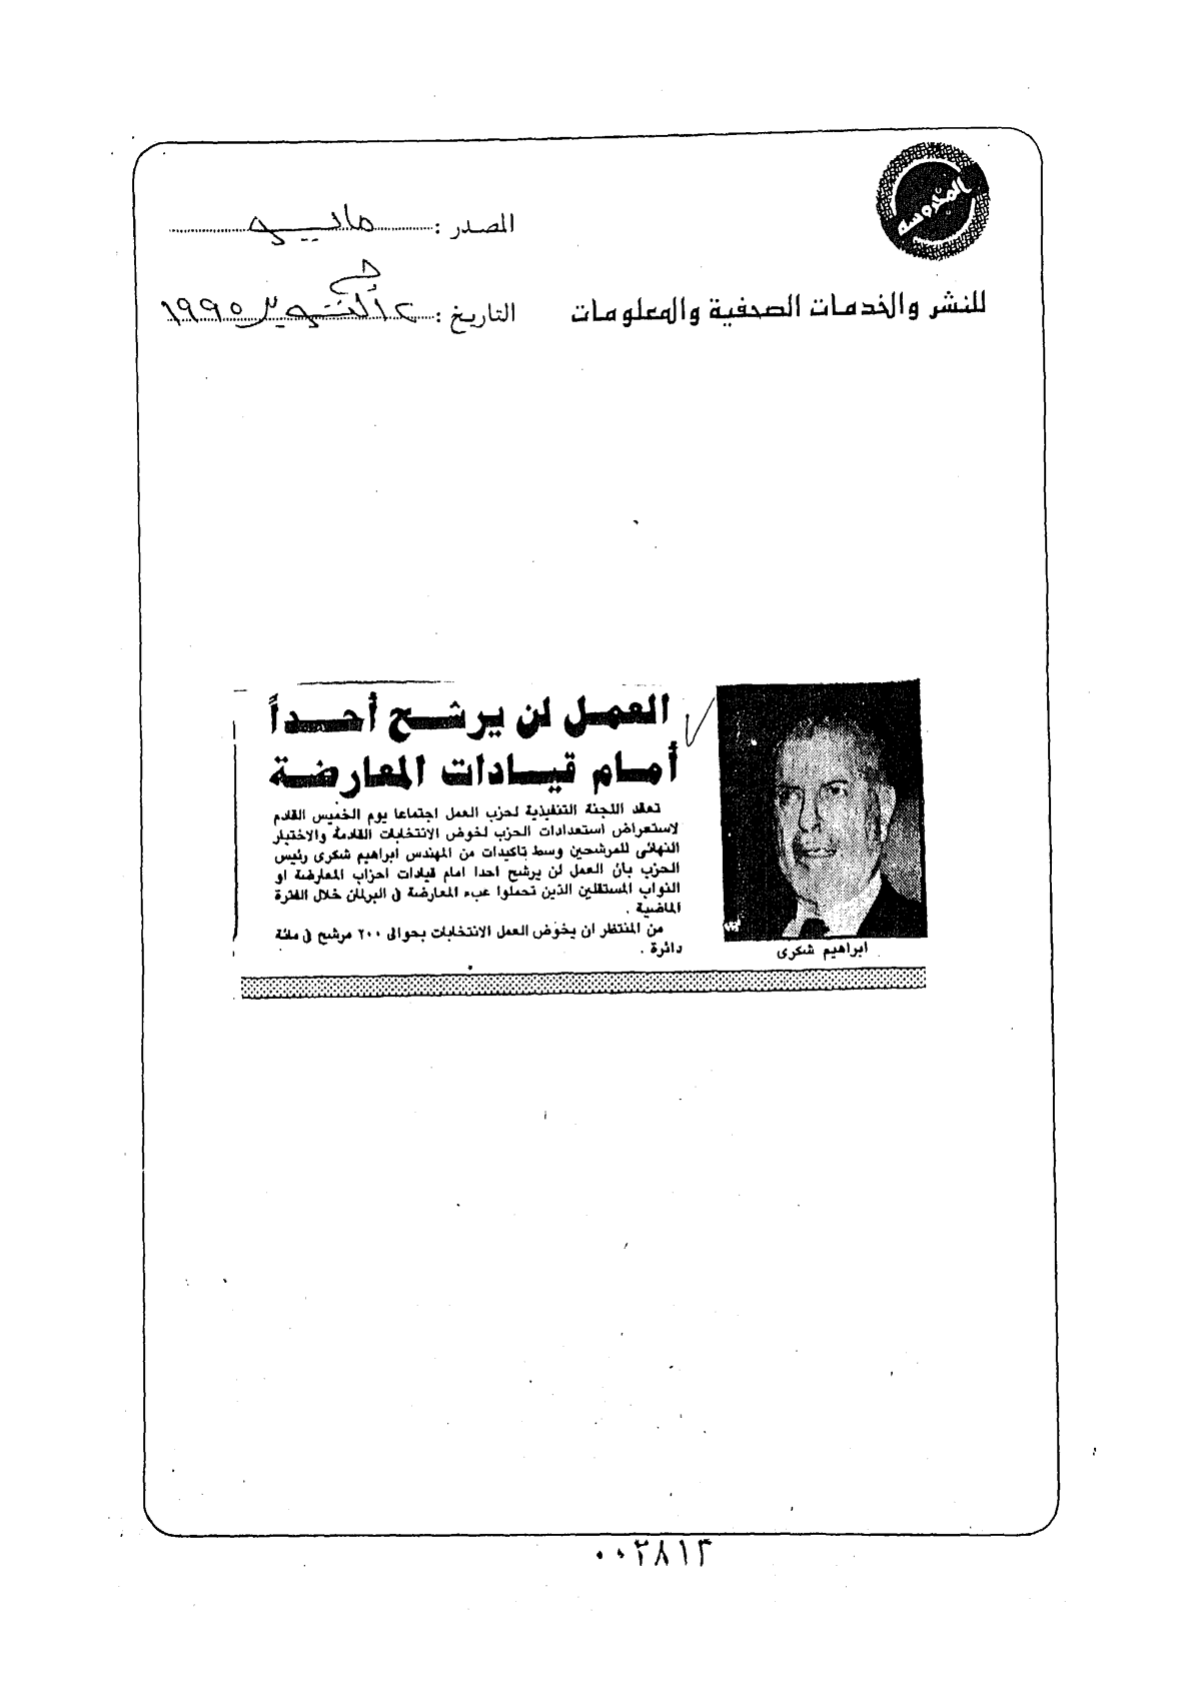 المحروسة
المصدر : مايو
للنشر والخدمات الصحفية والمعلومات
التاريخ : ٢ أكتوبر ١٩٩٥
العمل لن يرشح أحداً
أمام قيادات المعارضة
تعقد اللجنة التنفيذية لحزب العمل اجتماعا يوم الخميس القادم
لاستعراض استعدادات الحزب لخوض الانتخابات القادمة والاختيار
النهائى للمرشحين وسط تاكيدات من المهندس ابراهيم شكرى رئيس
الحزب بأن العمل لن يرشح احدا امام قيادات احزاب المعارضة او
النواب المستقلين الذين تحملوا عبء المعارضة فى البرلمان خلال الفترة
الماضية .
من المنتظر ان يخوض العمل الانتخابات بحوالى ٢٠٠ مرشح فى مائة
دائرة .
ابراهيم شكرى